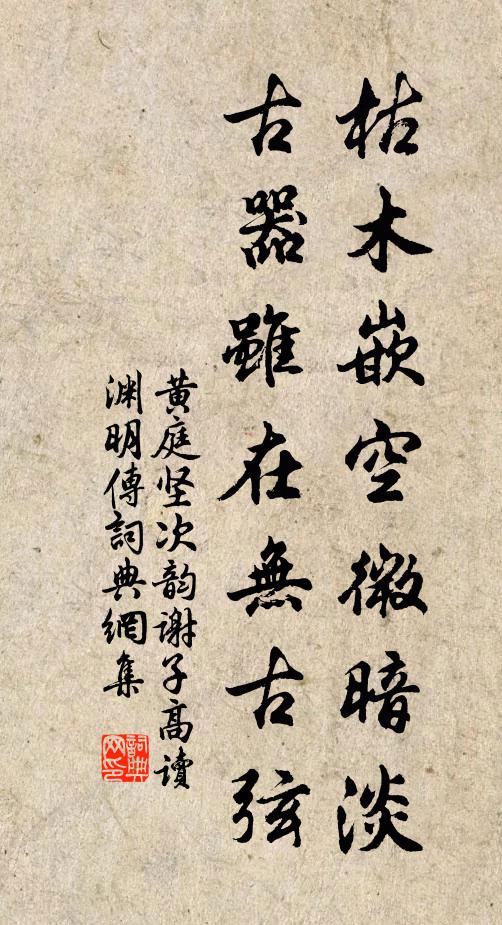 枯木嵌空微暗淡
古器雖在無古弦
黄庭坚次韵謝子高讀
渊明傳詞典網集
詞典网印